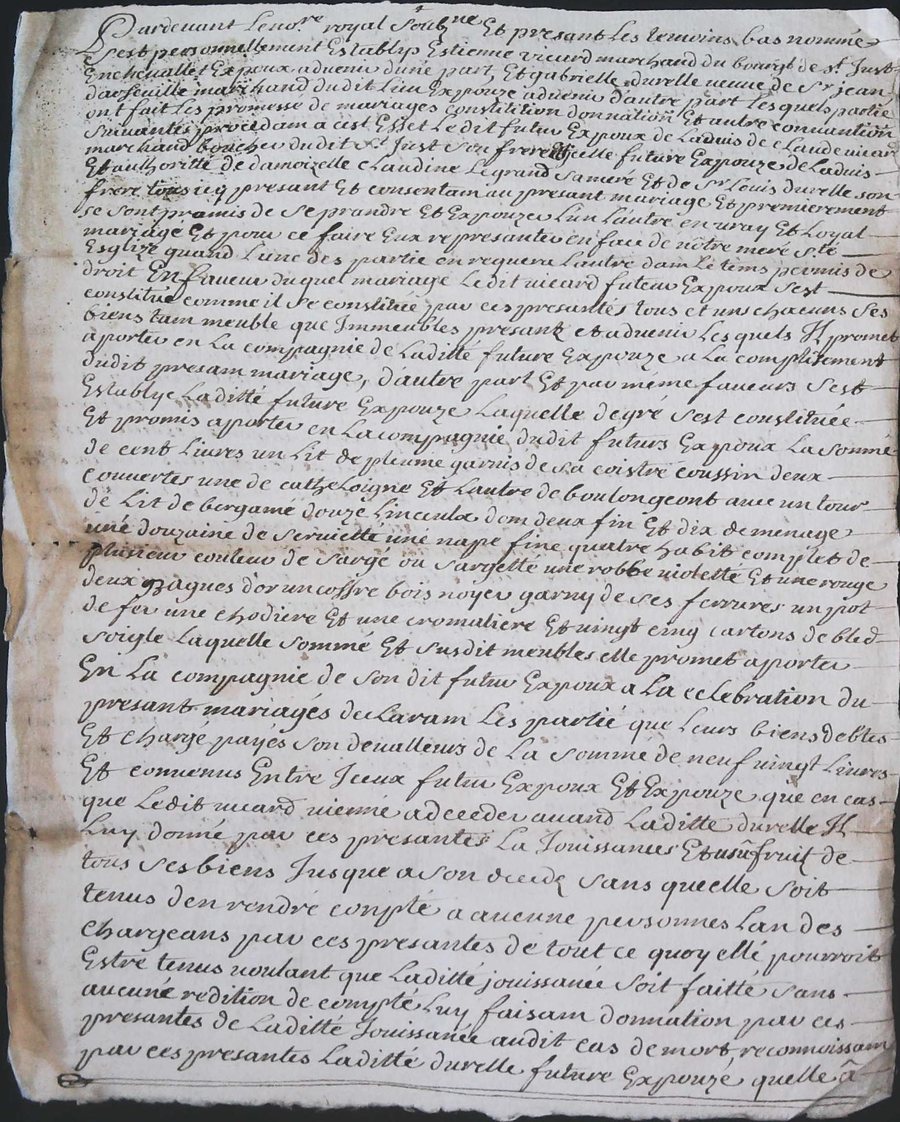 Pardevant Le no.re royal soub.né Et presant Les temoins bas nommé
s'est personnellement Establys Estienne vicard marchand du bourgt de st Just
En chevallet Expoux advenir dune part, Et gabrielle durelle veuve de Sr jean
darfeuille marchand dudit Lieu Expouze advenir d'autre part Lesquels partie
ont fait Les promesse de mariages constitution donnation Et autre convantion
suivantes procedam a cest Effet Ledit futur Expoux de Ladvis de claude vicard
marchand boucher dudit St Just son frere Et icelle future Expouze de Ladvis
Et authorité de damoizelle claudine Legrand sa meré Et de Sr Louis durelle son
frere tous icy presant Et consentam au presant mariage Et premierement
se sont promis de se prandre Et Expouze Lun Lautre en vray Et Loyal
mariage Et pour ce faire Eux representer en face de nôtre meré ste
Esglize quand Lune des partie en requera Lautre dam Le tems permis de
droit En faveur duquel mariage Ledit vicard futeur Expoux s'est
constitué comme il se constitué par ces presantes tous et uns chacuns ses
biens tam meuble que Immeubles presant et advenir Lesquels Il promet
aporter en La compagnie de Laditté future Expouze a La complitement
dudit presam mariage, d'autre part Et par même faveurs sest
Establye Laditté future Expouze Laquelle de gré s'est constituée
Et promis aporter en La compagnie dudit futurs Expoux La sommé
de cent Livres un Lit de plume garnis de sa coistre coussin deux
couvertes une de catheloigne Et Lautre de boulongeont avec un tour
de Lit de bergamé douze Linceulx dom deux fin Et dix de menage
uné douzaine de serviette une nape fine quatre habit complet de
plusieur couleur de sargé ou sargette une robbe violetté Et une rouge
deux bagues d'or un coffre bois noyer garny de ses ferrures un pot
de fer une chodiere Et une cromaliere Et vingt cinq cartons de bled
soigle Laquelle sommé Et susdit meubles elle promet aporter
En La compagnie de son dit futur Expoux a La celebration du
presant mariagés declaram Les partié que Leurs biens debtes
Et chargé payés son de valleurs de La somme de neuf vingt Livres
Et convenus Entre Iceux futur Expoux Et Expouze que en cas
que Ledit vicard vienné a deceder avand Laditte durelle Il
Luy donné par ces presantes La Jouissances Et usûfruit de
tous ses biens Jusque a son decedz sans quelle soit
tenus den rendré conpté a aucune personnes Lan des
chargeans par ces presantes de tout ce quoy ellé pourroit
Estre tenus voulant que Laditté jouissancé soit faitté sans
aucuné redition de compté Luy faisam donnation par ces
presantes de Laditté Jouissancé audit cas de mort, reconnoissam
par ces presantes Laditté durelle future Expouzé quelle â